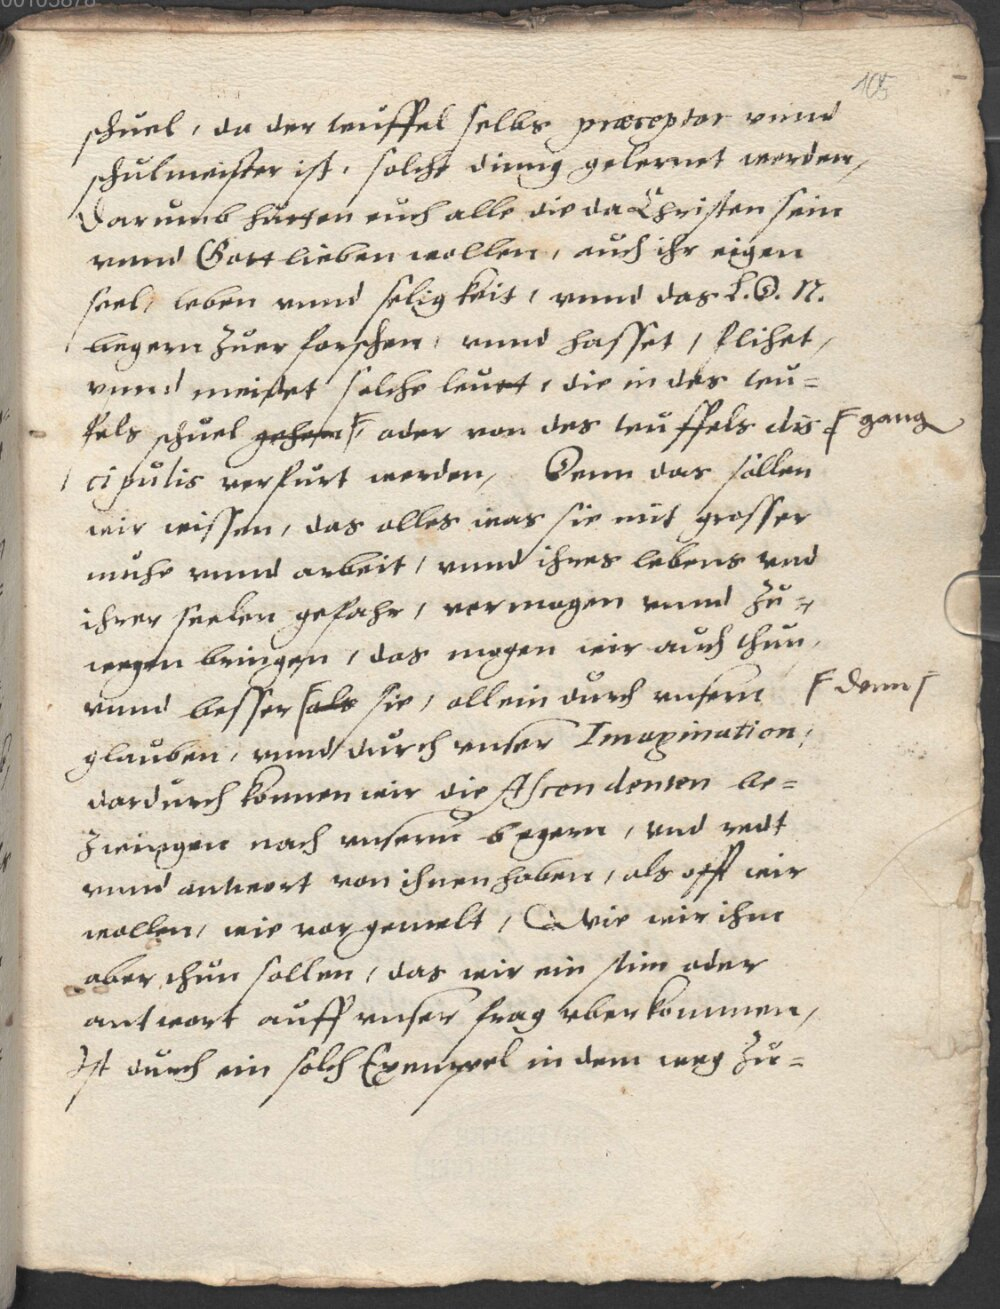 105
schuel, da der teuffel selbs præceptor vnnd
schulmeister ist, solche dinng gelernet werden,
Darumb hütten euch alle die da Christen sein
vnnd Gott lieben wollen, auch ihr eigen
seel, leben vnnd seligkeit, vnnd das L. O. N.
begern zuer forschen, vnnd hasset, flihet,
vnnd meidet solche leutt, die in des teu=
fels schuel gehen oder von des teuffels dis gang
cipulis verfürt werden, Denn das söllen
wir wissen, das alles was sie mit grosser
muhe vnnd arbeit, vnnd ihres lebens vnd
ihrer seelen gefahr, vermogen vnnd zu=
wegen bringen, das mogen wir auch thun,
vnnd besser als sie, allein durch vnsern denn
glauben, vnnd durch vnser Imagination,
dardurch konnen wir die Ascendenten be=
zwingen nach vnserm begern, vnd redt
vnnd antwort von ihnen haben, als offt wir
wollen, wie vor gemelt, Wie wir ihm
aber thun sollen, das wir ein stim oder
antwort auff vnser frag vberkommen,
Ist durch ein solch Exempel in dem weg zu=